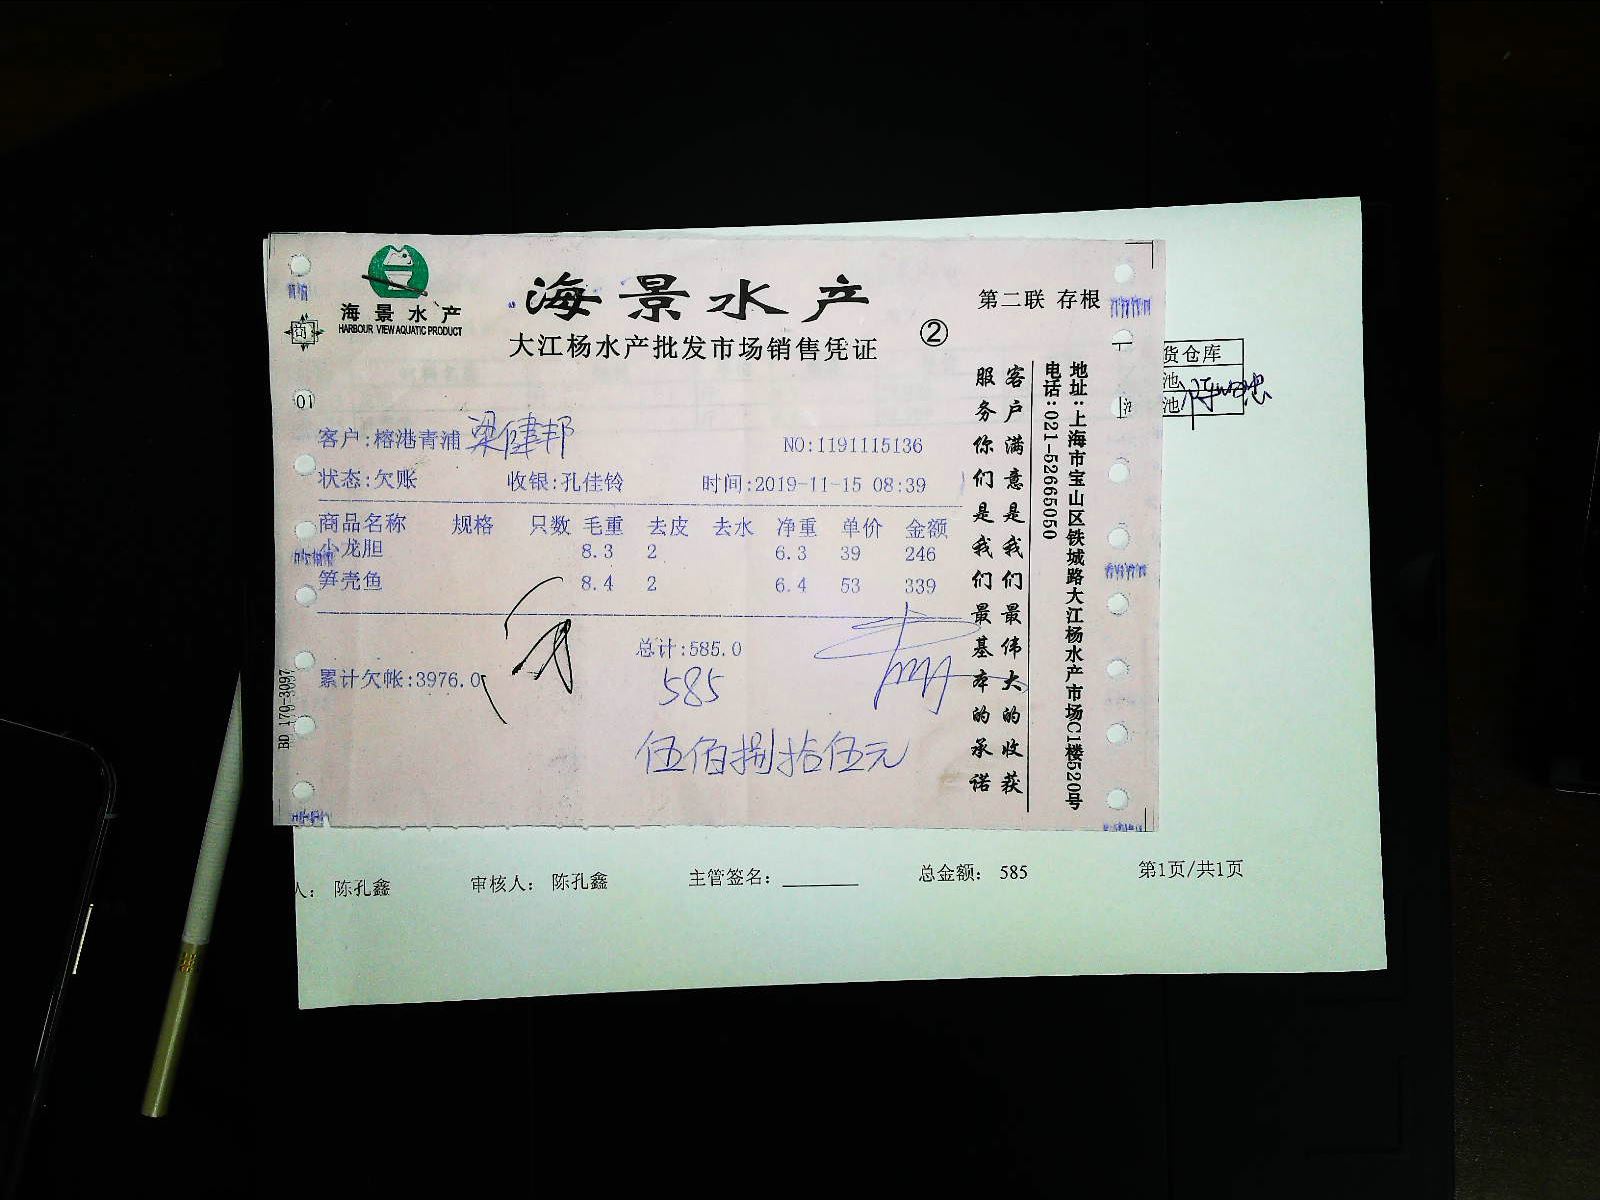 海景水产
HARBOUR VIEW AQUATIC PRODUCT
海景水产
大江杨水产批发市场销售凭证
②
第二联 存根
商
01
客户:榕港青浦 梁健邦
NO:1191115136
状态:欠账 收银:孔佳铃 时间:2019-11-15 08:39
商品名称 规格 只数 毛重 去皮 去水 净重 单价 金额
小龙胆 8.3 2 6.3 39 246
笋壳鱼 8.4 2 6.4 53 339
总计:585.0
累计欠帐:3976.0
585
伍佰捌拾伍元
客户满意是我们最伟大的收获
服务你们是我们最基本的承诺
地址:上海市宝山区铁城路大江杨水产市场C1楼520号
电话:021-52665050
BD 170-3097
货仓库
池
池
人: 陈孔鑫 审核人: 陈孔鑫 主管签名: 总金额: 585 第1页/共1页